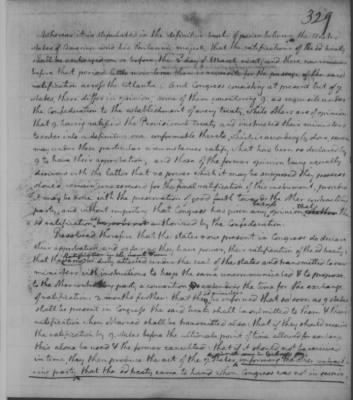 329
Whereas it is stipulated in the definitive treaty of peace between the United
states of America and his Britannic majesty, that the ratifications of the sd treaty
shall be exchanged on or before the 3d day of March next, and there now remains
before that period little more time than is requisite for the passage of the said
ratification across the Atlantic. And Congress consisting at present but of 7
states, these differ in opinion, some of them considering 9. as requisite under
the Confederation to the establishment of every treaty, while others are of opinion
that 9. having ratified the Provisional treaty, and instructed their ministers
to enter into a definitive one conformable thereto, which is accordingly done, seven
may under these particular circumstances ratify what has been so declared by
9 to have their approbation, and those of the former opinion being equally
desirous with the latter that no power which it may be supposed they possess
should remain unexercised for the final ratification of this instrument, provided
it may be done with the preservation of good faith towards the other contracting
party, and without importing that Congress has given any opinion that the
sd ratification is authorised by the Confederation.
Resolved therefore that the states now present in Congress do declare
their approbation, and so far as they have power, their ratification of the sd treaty;
that the ratification in the usual form
be duly attested under the seal of the states and transmitted to our
ministers with instructions to keep the same uncommunicated & to propose
to the other contracting party, a convention extending the time for the exchange
of ratifications 2 months further. that they be informed that so soon as 9 states
shall be present in Congress the said treaty shall be submitted to them & their
ratification when obtained shall be transmitted also: that if they should receive
the ratification by 9. states before the ultimate point of time allowed for exchange
this alone be used & the former cancelled: that if it should not be received
in time, they then produce the act of the 7. states, informing the other contract-
ing party that the sd treaty came to hand when Congress was not in session